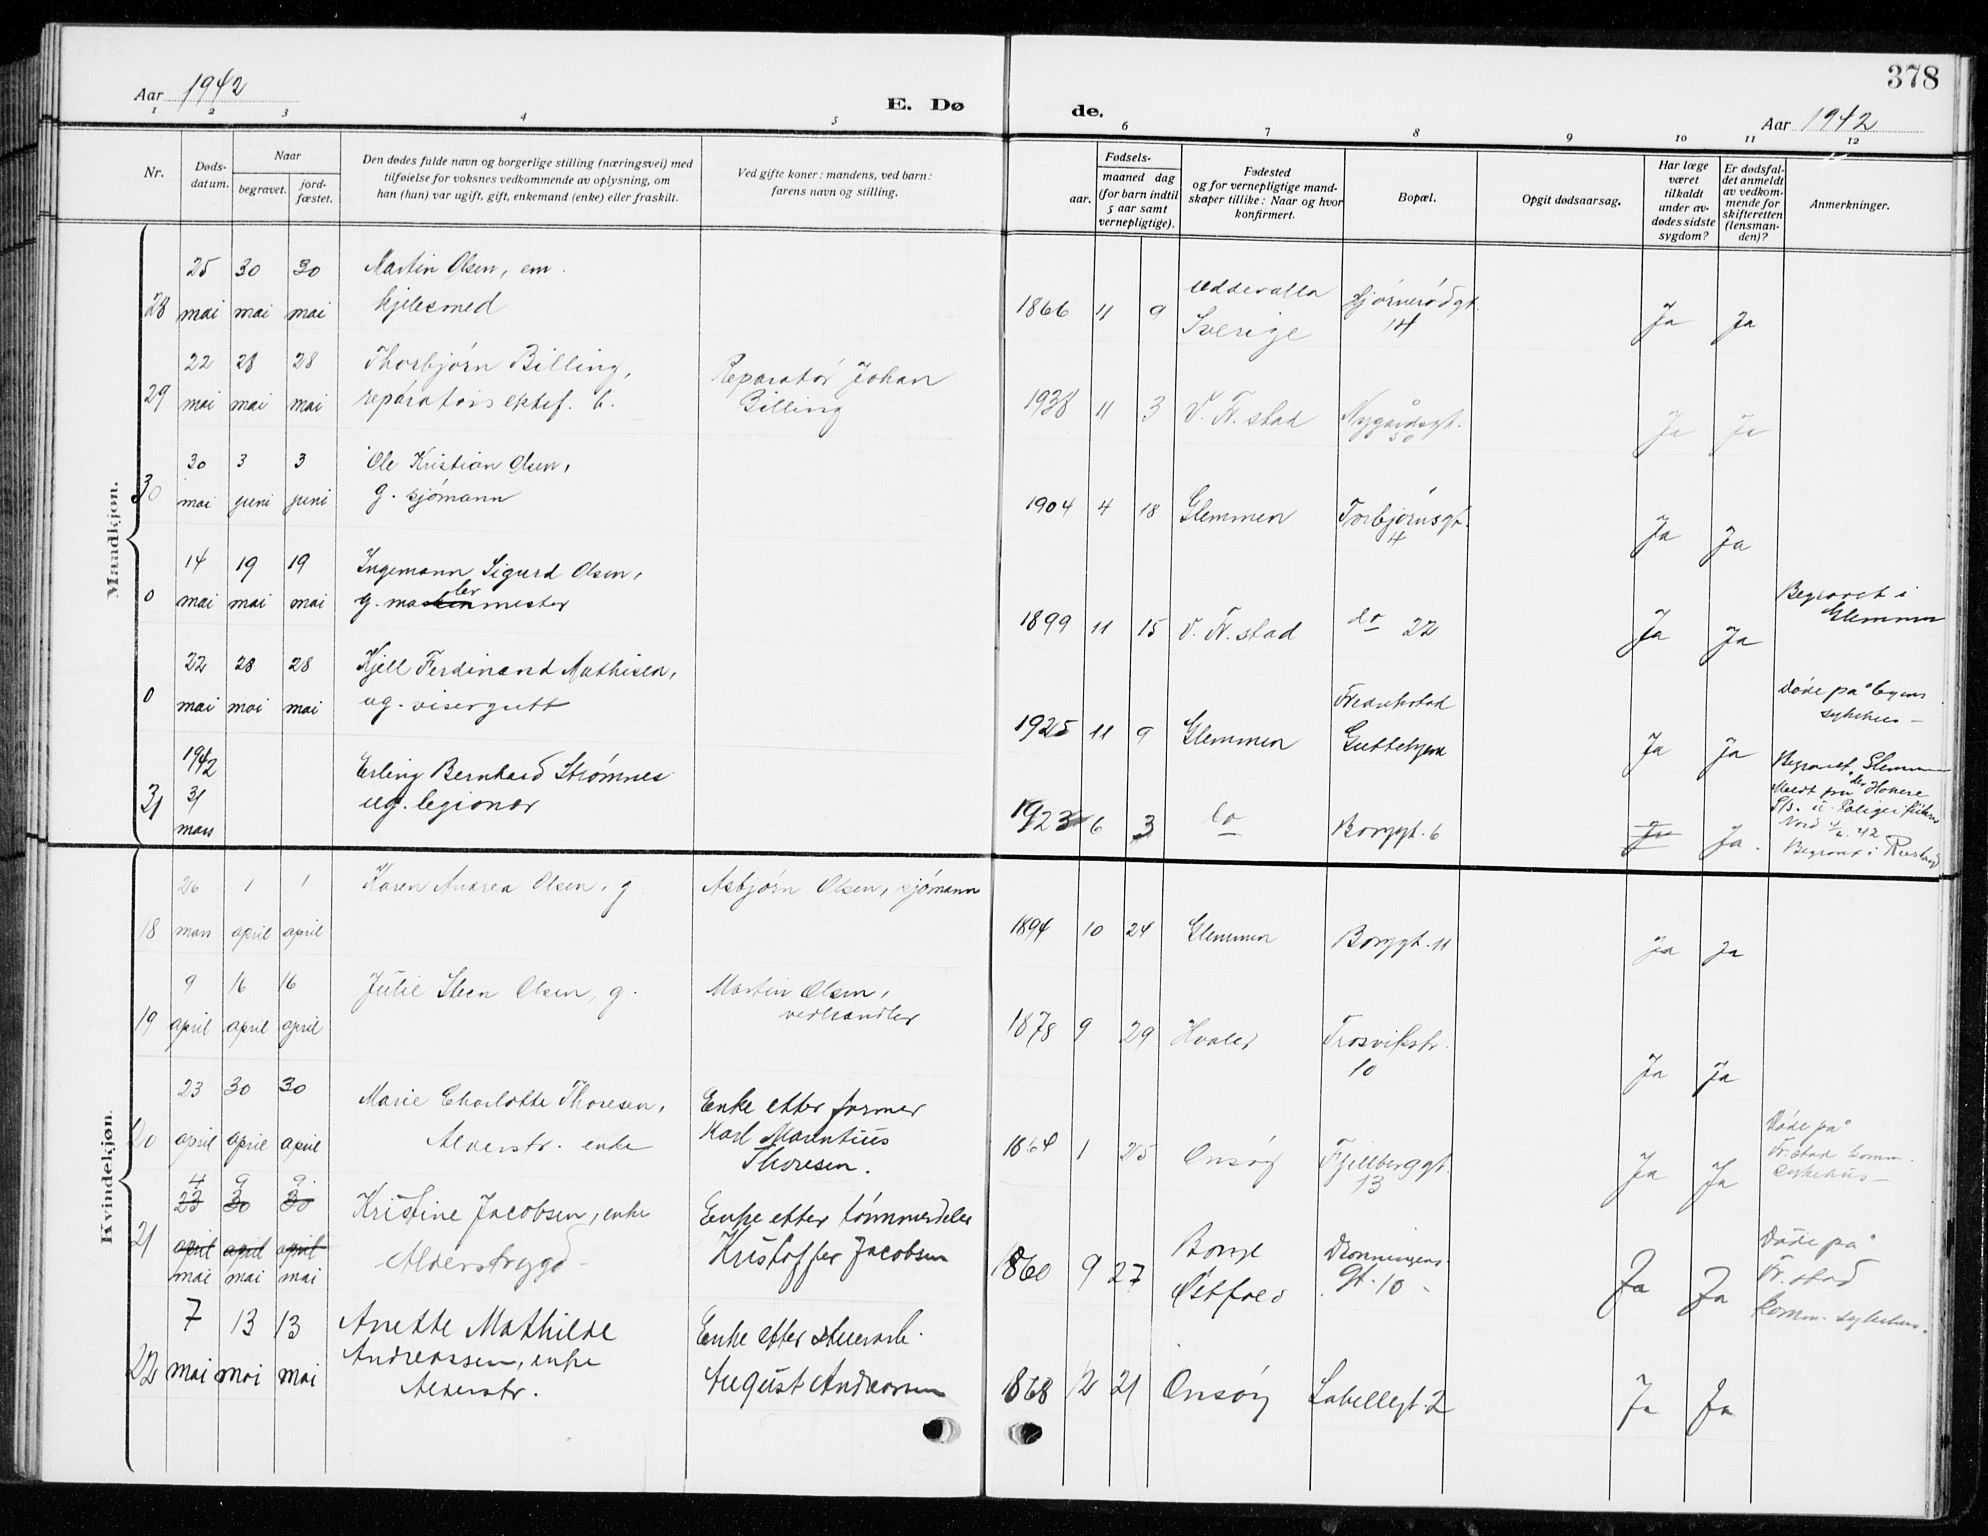 378
Aar 1942
E. Dø de.
Aar 1942
1 2 3 4 5 6 7 8 9 10 11 12
Nr.
Døds-
datum.
Naar
begravet.
jord-
fæstet.
Den dødes fulde navn og borgerlige stilling (næringsvei) med
tilføielse for voksnes vedkommende av oplysning, om
han (hun) var ugift, gift, enkemand (enke) eller fraskilt.
Ved gifte koner: mandens, ved barn:
farens navn og stilling.
Fødsels-
aar.
maaned dag
(for barn indtil
5 aar samt
vernepligtige).
Fødested
og for vernepligtige mand-
skaper tillike: Naar og hvor
konfirmert.
Bopæl.
Opgit dødsaarsag.
Har læge
været
tilkaldt
under av-
dødes sidste
sygdom?
Er dødsfal-
det anmeldt
av vedkom-
mende for
skifteretten
(lensman-
den)?
Anmerkninger.
Mandkjøn.
28 25 mai 30 mai 30 mai Martin Olsen, em.
kjelesmed
1866 11 9 Uddevalla
Sverige
Bjørnerødgt.
14
Ja Ja
29 22 mai 28 mai 28 mai Thorbjørn Billing,
reparatørs ektef. b.
Reparatør Johan
Billing
1938 11 3 V. Fr.stad Nygårdsgt.
50
Ja Ja
30 30 mai 3 juni 3 juni Ole Kristian Olsen,
g. sjømann
1904 4 18 Glemmen Torbjørnsgt.
4
Ja Ja
0 14 mai 19 mai 19 mai Ingemann Sigurd Olsen,
g. malermester
1899 11 15 V. Fr.stad do 22 Ja Ja Begravet i
Glemmen
0 22 mai 28 mai 28 mai Kjell Ferdinand Mathisen,
ug. visergutt
1925 11 9 Glemmen Fredrikstad
Guttehjem
Ja Ja Døde på byens
sykehus –
Begravet Glemmen
31 1942 31 mars Erling Bernhard Strømnes
ug. legionær
1923 6 3 do Borggt. 6 Ja Ja. Meldt fra der Höhere
S/s. u. Polizeiführer
Nord 4/6 42
Begravet i Russland
Kvindekjøn.
18 26 mars 1 april 1 april Karen Andrea Olsen, g. Asbjørn Olsen, sjømann
1894 10 24 Glemmen Borggt. 11 Ja Ja
19 9 april 16 april 16 april Julie Steen Olsen, g. Martin Olsen,
vedhandler
1878 9 29 Hvaler Trosvikstr.
10
Ja Ja
20 23 april 30 april 30 april Marie Charlotte Thoresen,
Alderstr. enke
Enke etter former
Karl Marentius
Thoresen.
1864 1 25 Onsøy Fjellberggt.
13
Ja Ja Døde på
Fr.stad komm.
sykehus –
21 4 9 9.
23 30 30
april april april
mai mai mai
Kristine Jacobsen, enke
Alderstrygd –
Enke etter tømmerdeler
Kristoffer Jacobsen
1860 9 27 Borge
Østfold
Dronningens
gt. 10 –
Ja Ja Døde på
Fr.stad
komm. sykehus.
22 7 mai 13 mai 13 mai Anette Mathilde
Andreassen, enke
Alderstr.
Enke etter stuerarb.
August Andreassen
1868 12 21 Onsøy Labellegt. 2 Ja Ja